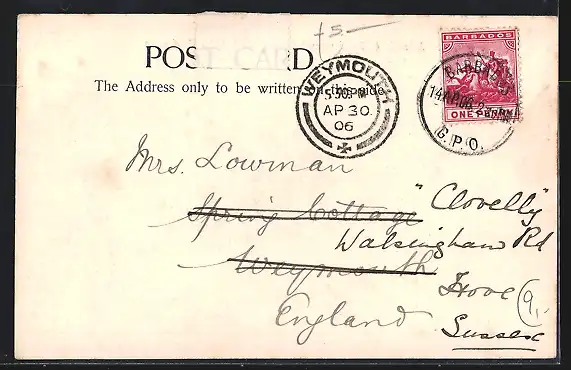 5-
POST CARD
The Address only to be written on this side
WEYMOUTH
5 30 PM
AP 30
06
BARBADOS
ONE PENNY
BARBADOS
14 AP 06
G.P.O.
Mrs. Lowman
Spring Cottage
"Clovelly"
Walsingham Rd
Weymouth
Hove
England
Sussex
9,-